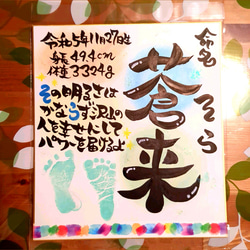 命名
そら
蒼来
令和5年11月27日生
身長49.4cm
体重3324g
その明るさは
かならず沢山の
人を幸せにして
パワーを届けるよ